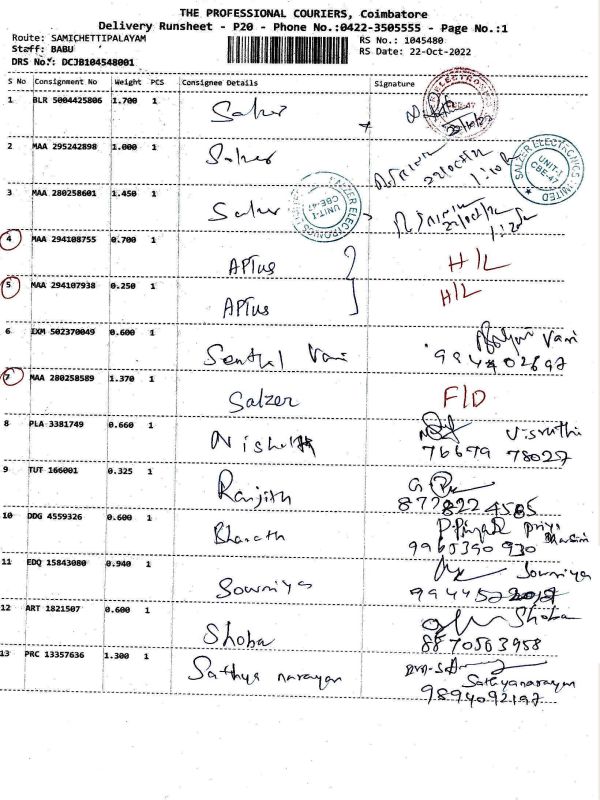 THE PROFESSIONAL COURIERS, Coimbatore
Delivery Runsheet - P20 - Phone No.:0422-3505555 - Page No.:1
Route: SAMICHETTIPALAYAM
RS No.: 1045480
Staff: BABU
RS Date: 22-Oct-2022
DRS No.: DCJB104548001
S No Consignment No Weight PCS Consignee Details Signature
1 BLR 5004425806 1.700 1 Salzer
CBE-47
2 MAA 295242898 1.000 1 Salzer
SALZER ELECTRONICS LIMITED
UNIT-I
CBE-47
3 MAA 280258601 1.450 1 Salzer
SALZER ELECTRONICS
UNIT-I
CBE-47
4 MAA 294108755 0.700 1 APTus H/L
5 MAA 294107938 0.250 1 APTus H/L
6 IXM 502370049 0.600 1 Senthil Vani Vani
7 MAA 280258589 1.370 1 Salzer F/D
8 PLA 3381749 0.660 1 Nisheth Visruthi
76679 78027
9 TUT 166001 0.325 1 Ranjith
8778224585
10 DDG 4559326 0.600 1 Bharath Priya
9965390 930
11 EDQ 15843080 0.940 1 Sowmiya Sowmiya
12 ART 1821507 0.600 1 Shoba Shoba
8870563958
13 PRC 13357636 1.300 1 Sathya narayan
Sathyanarayan
9894092197